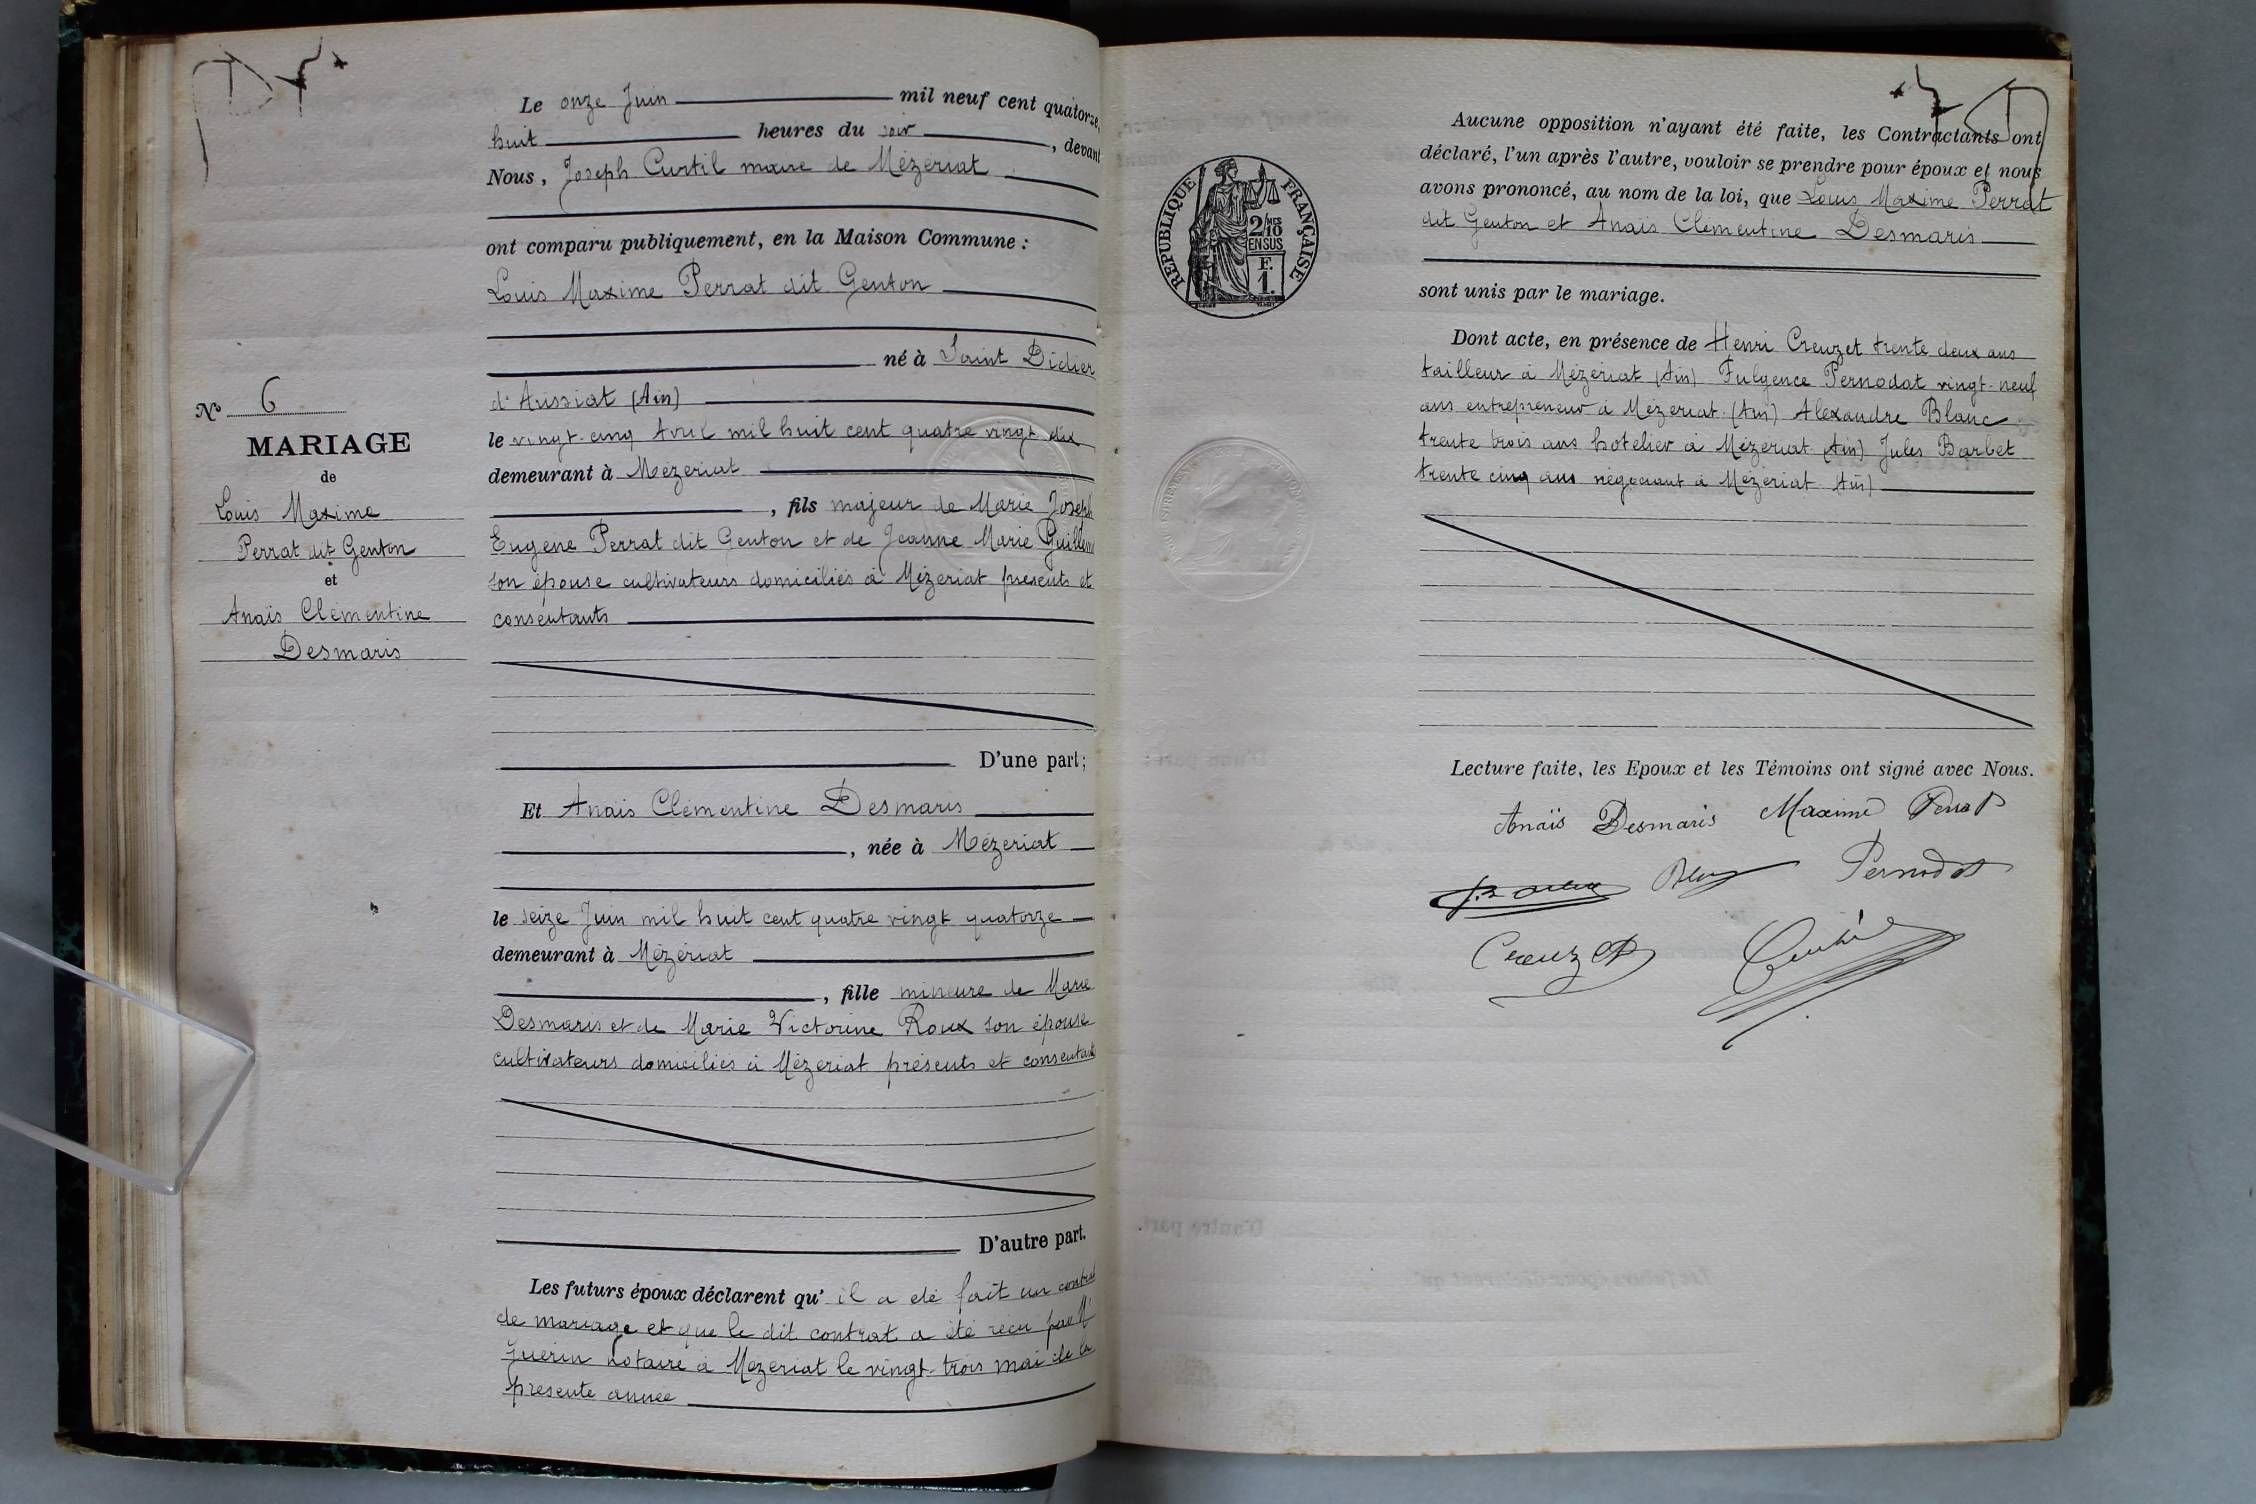 Le onze Juin mil neuf cent quatorze,
huit heures du soir, devant
Nous, Joseph Curtil maire de Mézériat
ont comparu publiquement, en la Maison Commune :
Louis Maxime Perrat dit Genton
né à Saint Didier
d'Aussiat (Ain)
le vingt-cinq Avril mil huit cent quatre vingt dix
demeurant à Mézériat
, fils majeur de Marie Joseph
Eugène Perrat dit Genton et de Jeanne Marie
son épouse cultivateurs domiciliés à Mézériat présents et
consentants
D'une part;
Et Anaïs Clémentine Desmaris
, née à Mézériat
le seize Juin mil huit cent quatre vingt quatorze
demeurant à Mézériat
, fille mineure de Marie
Desmaris et de Marie Victorine Roux son épouse
cultivateurs domiciliés à Mézériat présents et consentants
D'autre part.
Les futurs époux déclarent qu' il a été fait un contrat
de mariage et que le dit contrat a été reçu par Me
Guérin Notaire à Mézériat le vingt-trois mai de la
présente année
No 6
MARIAGE
de
Louis Maxime
Perrat dit Genton
et
Anaïs Clémentine
Desmaris
REPUBLIQUE FRANÇAISE
2/MES
10
EN SUS
F.
1.
Aucune opposition n'ayant été faite, les Contractants ont
déclaré, l'un après l'autre, vouloir se prendre pour époux et nous
avons prononcé, au nom de la loi, que Louis Maxime Perrat
dit Genton et Anaïs Clémentine Desmaris
sont unis par le mariage.
Dont acte, en présence de Henri Creuzet trente deux ans
tailleur à Mézériat (Ain) Fulgence Pernodat vingt-neuf
ans entrepreneur à Mézériat (Ain) Alexandre Blanc
trente trois ans hotelier à Mézériat (Ain) Jules Barbet
trente cinq ans négociant à Mézériat (Ain)
Lecture faite, les Epoux et les Témoins ont signé avec Nous.
Anaïs Desmaris Maxime Perrat
Pernodat
Creuzet